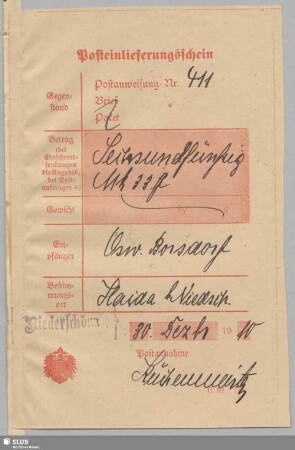 Posteinlieferungsschein
Gegen-
stand
Postanweisung Nr. 411
Brief
Paket
Betrag
(bei
Einschreib-
sendungen
die Angabe E,
bei Post-
aufträgen A)
Sechsundfünfzig
Mk 33 ₰
Gewicht
Em-
pfänger
Osw. Borsdorf
Bestim-
mungs-
ort
Haida b
Niederschöna
30. Dezbr 1910
Postannahme